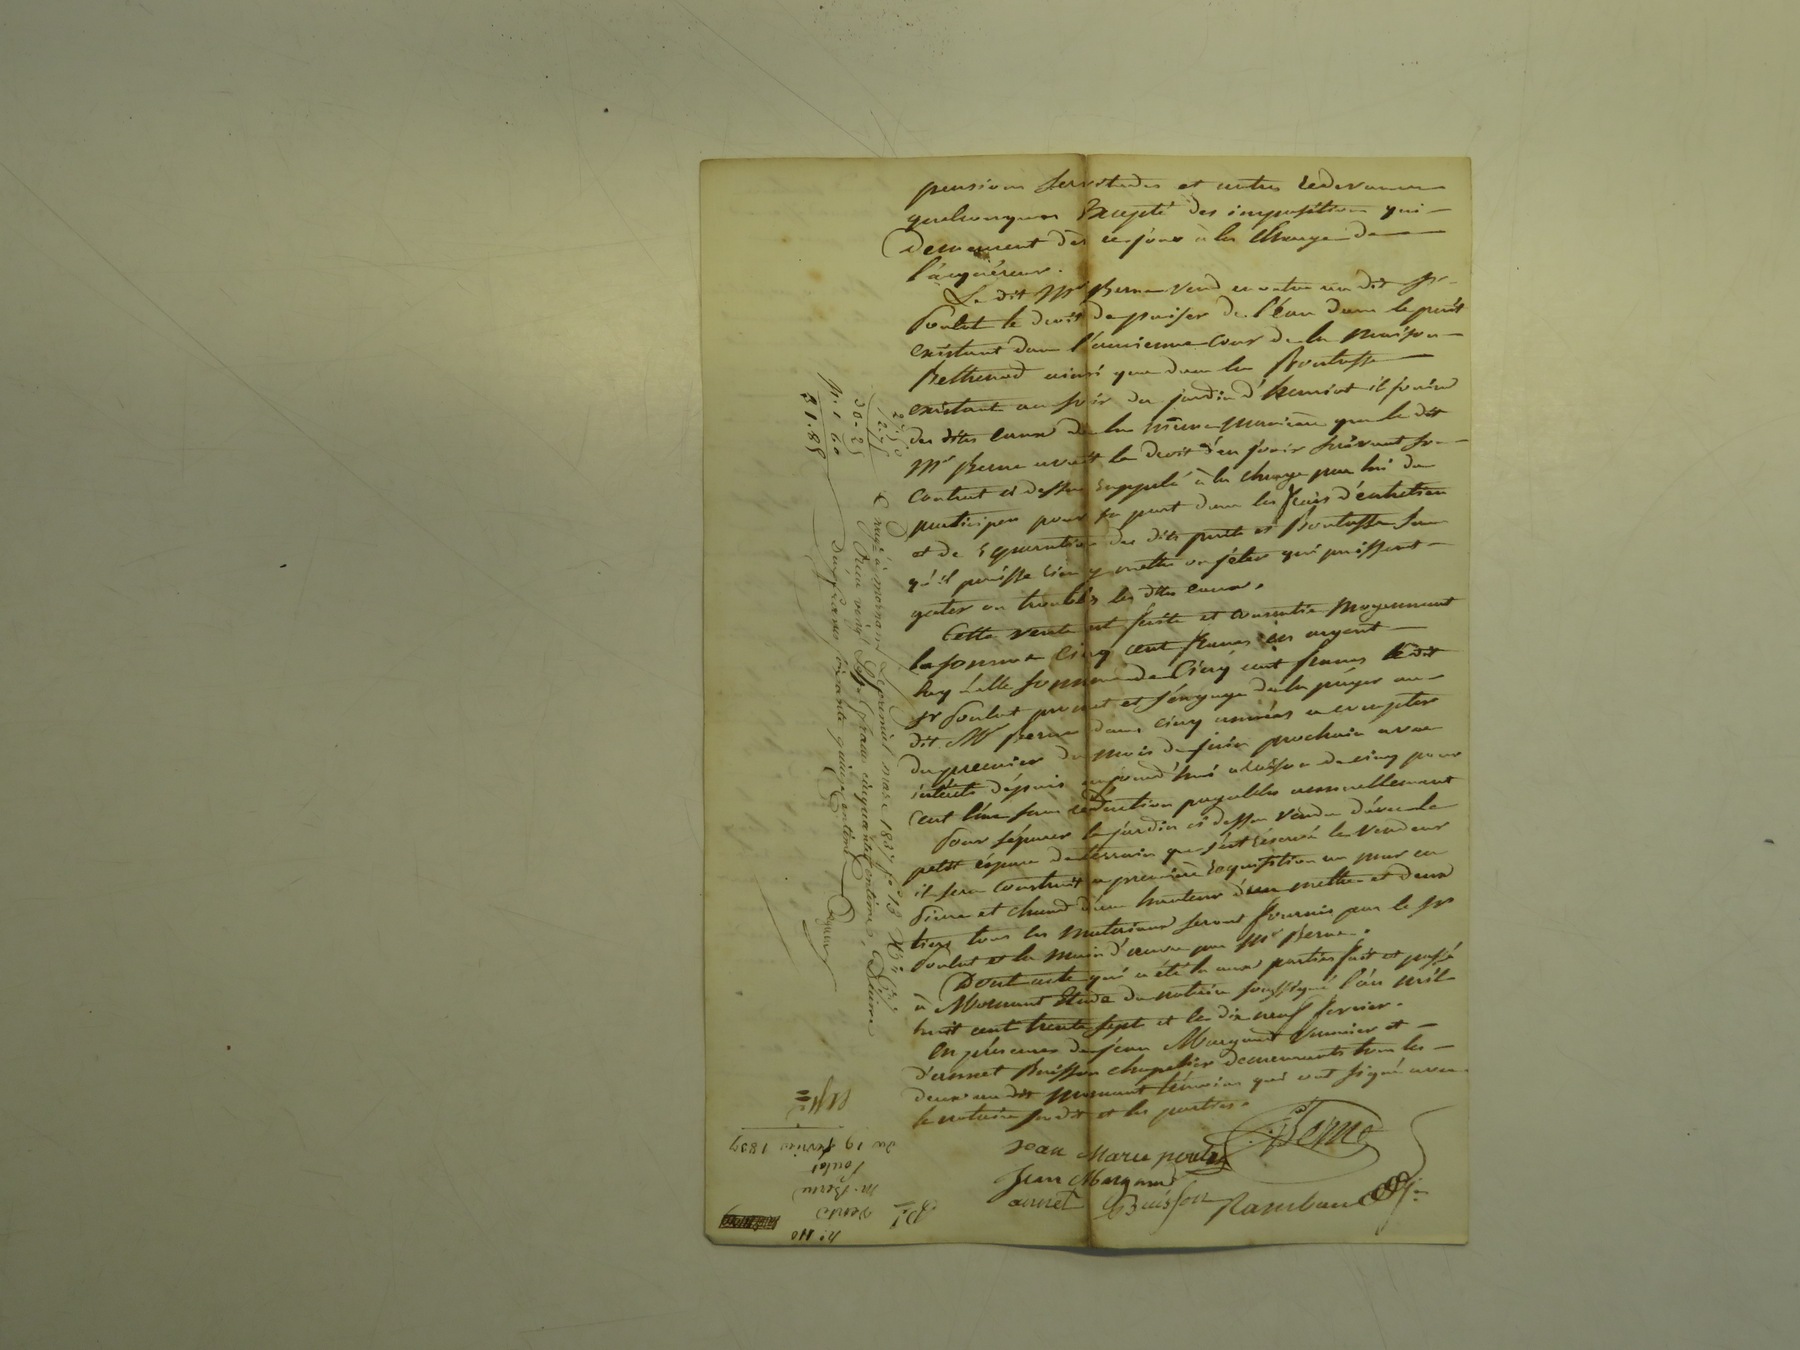 pension servitudes et autres redevances
quelconques Excepté des impositions qui
demeurent dès ce jour à la charge de
l'acquéreur.
Le dit Mr Berne vend en outre au dit Sr
Poulat le droit de puiser de l'eau dans le puit
existant dans l'ancienne cour de la maison
Bethenod ainsi que dans la Boutasse
existante au soir du jardin d' il jouira
des dites eaux de la même manière que le dit
Mr Berne avait le droit d'en jouir suivant son
contrat ci dessus rappelé à la charge par lui de
participer pour sa part dans les frais d'entretien
et de réparation des dits puits et Boutasse sans
qu'il puisse rien y mettre ou jéter qui puissent
gater ou troubler les dites eaux.
Cette vente est faite et consentie moyennant
la somme cinq cent francs en argent
laquelle somme de Cinq cent francs le dit
Sr Poulat promet et s'engage de la payer au
dit Mr Berne dans cinq années a compter
du premier du mois de juin prochain avec
intérêts dépuis aujourd'hui a raison de cinq pour
cent l'an sans réduction payables annuellement
Pour séparer le jardin ci dessus vendu d'avec le
petit éspace de terrain que s'est réservé le vendeur
il sera construit a première réquisition un mur en
Pierre et chaud d'une hauteur d'un mettre et deux
tiers tous les matériaux seront fournis par le Sr
Poulat et la main d'œuvre par Mr Berne.
Dont acte qui a été lu aux parties fait et passé
à Mornant Etude du notaire soussigné l'an mil
huit cent trente sept et le dix neuf fevrier.
En présence de Jean Margand et
d'Annet Buisson chapelier demeurants tous les
deux au dit Mornant témoins qui ont signé avec
le notaire susdit et les parties.
Jean Marie poulat Berne
Jean Margand
annet Buisson Rambaud
27.50
2.75
30-25
1 60
31.85
Enrgé à mornant le premier mars 1837 fo 13
Reçu vingt sept francs cinquante centimes, Décime
Deux francs soixante quinze centimes
No 110
vente
Mr Berne
Poulat
du 19 fevrier 1837